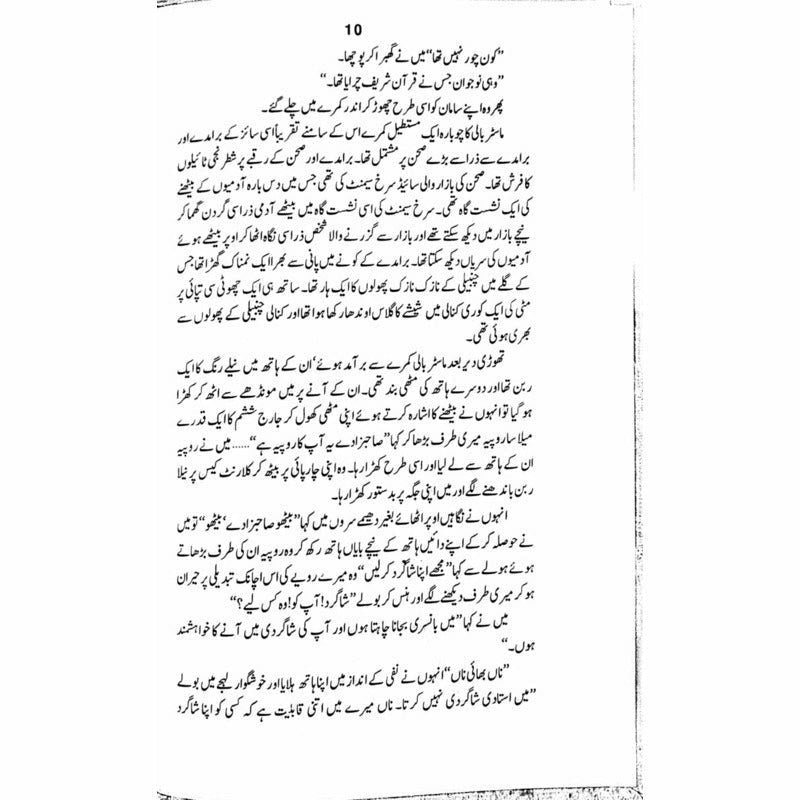 10
”کون چور نہیں تھا“ میں نے گھبرا کر پوچھا۔
”وہی نوجوان جس نے قرآن شریف چرایا تھا۔“
پھر وہ اپنے سامان کو اسی طرح چھوڑ کر اندر کمرے میں چلے گئے۔
ماسٹر بالی کا چوبارہ ایک مستطیل کمرے اس کے سامنے تقریباً اسی سائز کے برآمدے اور
برآمدے سے ذرا سے بڑے صحن پر مشتمل تھا۔ برآمدے اور صحن کے رقبے پر شطرنجی ٹائیلوں
کا فرش تھا۔ صحن کی بازار والی سائیڈ سرخ سیمنٹ کی تھی جس میں دس بارہ آدمیوں کے بیٹھنے
کی ایک نشست گاہ تھی۔ سرخ سیمنٹ کی اسی نشست گاہ میں بیٹھے آدمی ذرا سی گردن گھما کر
نیچے بازار میں دیکھ سکتے تھے اور بازار سے گزرنے والا شخص ذرا سی نگاہ اٹھا کر اوپر بیٹھے ہوئے
آدمیوں کی سریاں دیکھ سکتا تھا۔ برآمدے کے کونے میں پانی سے بھرا ایک نمناک گھڑا تھا جس
کے گلے میں چنبیلی کے نازک نازک پھولوں کا ایک ہار تھا۔ ساتھ ہی ایک چھوٹی سی تپائی پر
مٹی کی ایک کوری کنالی میں شیشے کا گلاس اوندھا رکھا ہوا تھا اور کنالی چنبیلی کے پھولوں سے
بھری ہوئی تھی۔
تھوڑی دیر بعد ماسٹر بالی کمرے سے برآمد ہوئے‘ ان کے ہاتھ میں نیلے رنگ کا ایک
ربن تھا اور دوسرے ہاتھ کی مٹھی بند تھی۔ ان کے آنے پر میں مونڈھے سے اٹھ کر کھڑا
ہو گیا تو انہوں نے بیٹھنے کا اشارہ کرتے ہوئے اپنی مٹھی کھول کر جارج ششم کا ایک قدرے
میلا سا روپیہ میری طرف بڑھا کر کہا ”صاحبزادے یہ آپ کا روپیہ ہے“...... میں نے روپیہ
ان کے ہاتھ سے لے لیا اور اسی طرح کھڑا رہا۔ وہ اپنی چارپائی پر بیٹھ کر کلارنٹ کیس پر نیلا
ربن باندھنے لگے اور میں اپنی جگہ پر بدستور کھڑا رہا۔
انہوں نے نگاہیں اوپر اٹھائے بغیر دھیمے سروں میں کہا ”بیٹھو صاحبزادے‘ بیٹھو“ تو میں
نے حوصلہ کر کے اپنے دائیں ہاتھ کے نیچے بایاں ہاتھ رکھ کر وہ روپیہ ان کی طرف بڑھاتے
ہوئے ہولے سے کہا ”مجھے اپنا شاگرد کر لیں“ وہ میرے رویے کی اس اچانک تبدیلی پر حیران
ہو کر میری طرف دیکھنے لگے اور ہنس کر بولے ”شاگرد! آپ کو! وہ کس لیے؟“
میں نے کہا ”میں بانسری بجانا چاہتا ہوں اور آپ کی شاگردی میں آنے کا خواہشمند
ہوں۔“
”ناں بھائی ناں“ انہوں نے نفی کے انداز میں اپنا ہاتھ ہلایا اور خوشگوار لہجے میں بولے
”میں استادی شاگردی نہیں کرتا۔ ناں میرے میں اتنی قابلیت ہے کہ کسی کو اپنا شاگرد